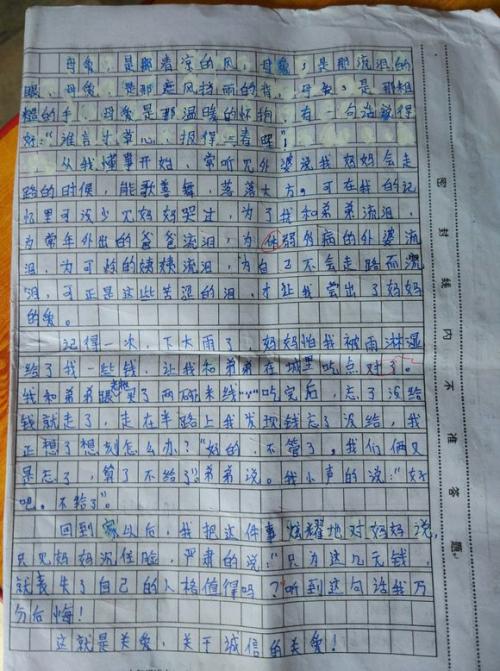 母爱，是那清凉的风，母爱，是那流泪的
眼，母爱，是那遮风挡雨的背，母爱，是那粗
糙的手，母爱是那温暖的怀抱，有一句话说得
好：“谁言寸草心，报得三春晖”！
从我懂事开始，常听见外婆说我妈妈会走
路的时候，能歌善舞，落落大方。可在我的记
忆里可没少见妈妈哭过，为了我和弟弟流泪，
为常年外出的爸爸流泪，为体弱多病的外婆流
泪，为可怜的姨姨流泪，为自己不会走路而流
泪，可正是这些苦涩的泪，才让我尝出了妈妈
的爱。
记得一次，下大雨了，妈妈怕我被雨淋湿
给了我一些钱，让我和弟弟在城里吃点对了。
我和弟弟跟老板要了两碗米线“…”吃完后，忘了没给
钱就走了，走在半路上我发现钱忘了没给，我
正想了想刻怎么办？“好的，不管了，我们俩又
是忘了，算了不给了”弟弟说。我小声的说：“好
吧。不给了”。
回到家以后，我把这件事炫耀地对妈妈说，
只见妈妈沉住脸，严肃的说：“只为这几元钱，
就丧失了自己的人格值得吗？听到这句话我万
分后悔！
这就是关爱，关于诚信的关爱！
密封线内不准答题